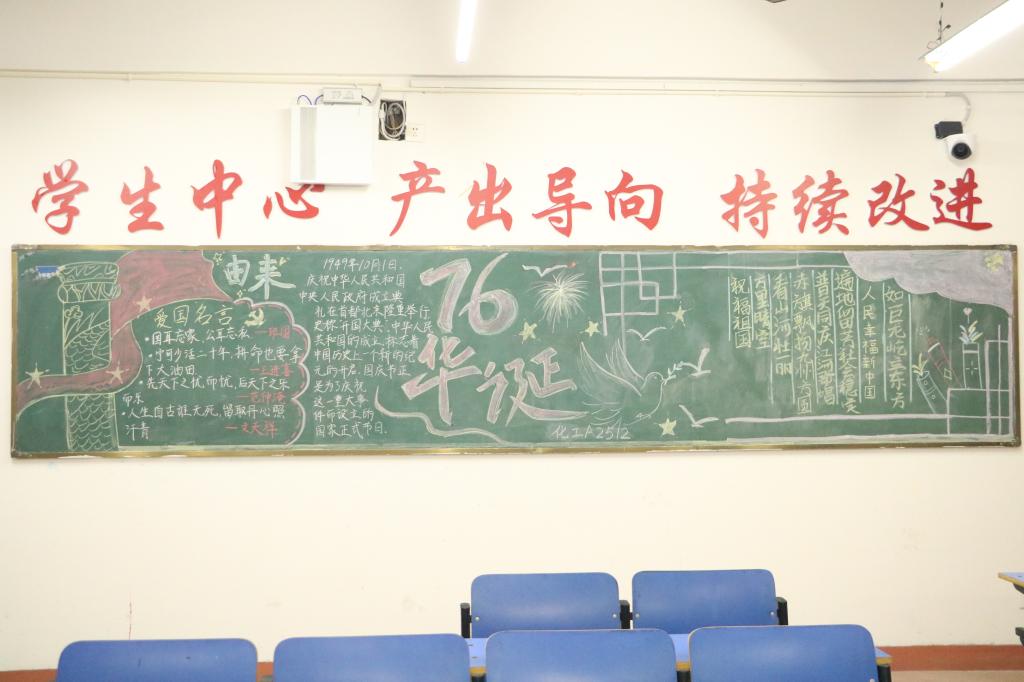 学生中心 产出导向 持续改进
爱国名言
•国耳忘家,公耳忘私
•宁可少活二十年,拼命也要拿
下大油田 —王进喜
•先天下之忧而忧,后天下之乐
而乐 —范仲淹
•人生自古谁无死,留取丹心照
汗青 —文天祥
由来
1949年10月1日,
庆祝中华人民共和国
中央人民政府成立典
礼在首都北京隆重举行
史称"开国大典".中华人民
共和国的成立,标志着
中国历史上一个新的纪
元的开启.国庆节正
是为了庆祝
这一重大事
件而设立的
国家正式节日.
76
华诞
化工A2512
如巨龙屹立东方
人民幸福新中国
遍地四田去社会稳定
普天同庆江河
赤旗飘扬
看山河壮丽
万里晴空
祝福祖国